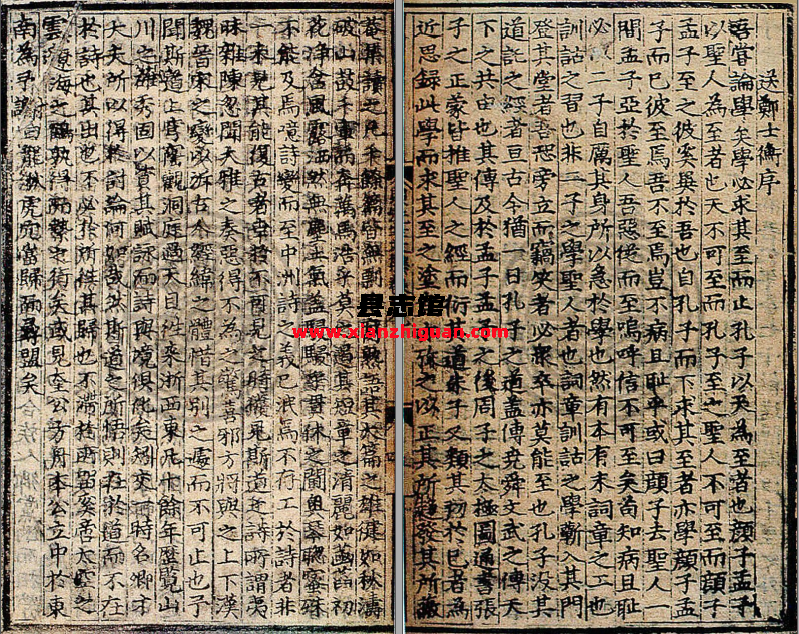 送鄭士衡序
嘗論學矣學必求其至而止孔子以天為至者也顏子孟子
以聖人為至者也天不可至而孔子至之聖人不可至而顏子
孟子至之彼奚異於吾也自孔子而下求其至者亦學顏子孟
子而已彼至焉吾不至焉豈不病且耻乎或曰顏子去聖人一
間孟子亞於聖人吾惡從而至嗚呼信不可至矣苟知病且耻
必以二子自厲其身所以急於學也然有本有末詞章之工也
訓詁之習也非二子之學聖人者也詞章訓詁之學蘄入其門
登其堂者吾恐旁立而竊笑者必衆卒亦莫能至也孔子没其
道託之經者亘古今猶一日孔子之道蓋傳堯舜文武之傳天
下之共由也其傳及於孟子孟子之後周子之太極圖通書張
子之正蒙皆推聖人之經而衍其道朱子又類其切於已者為
近思録此學而求其至之塗 之以正其所趨發其所
菴集讀之凡千餘篇 其大篇之雄健如秋濤
破山鼓千軍而奔萬馬浩乎莫 其短章之清麗如菡萏初
花淨含風露洒然無塵土氣蓋 貫休之閫奥
不能及焉噫詩變而至中州詩之義已泯焉不存工於詩者非
一求見其能復古者宜於不可見之時獲見斯道之詩所謂夷
昧雜陳忽聞大雅之奏惡得不為之驚喜邪方將與之上下漢
魏晉宋之變以泝古今經緯之體惜其别之遽而不可止也予
聞斯道上匡廬觀洞庭過大 往來浙西東凡十餘年歷覽山
川之雄秀固以資其賦詠而詩與境俱化矣 時名卿才
大夫所以得於討論何如哉然斯道之所悟則在於道而不在
於詩也其出也不必於所徃其歸也不滯於所留奚啻太空之
雲 海之鷗孰得而 之術矣或見至公 本公立中於東
南為予謝曰龍湫虎穴當歸而尋盟矣